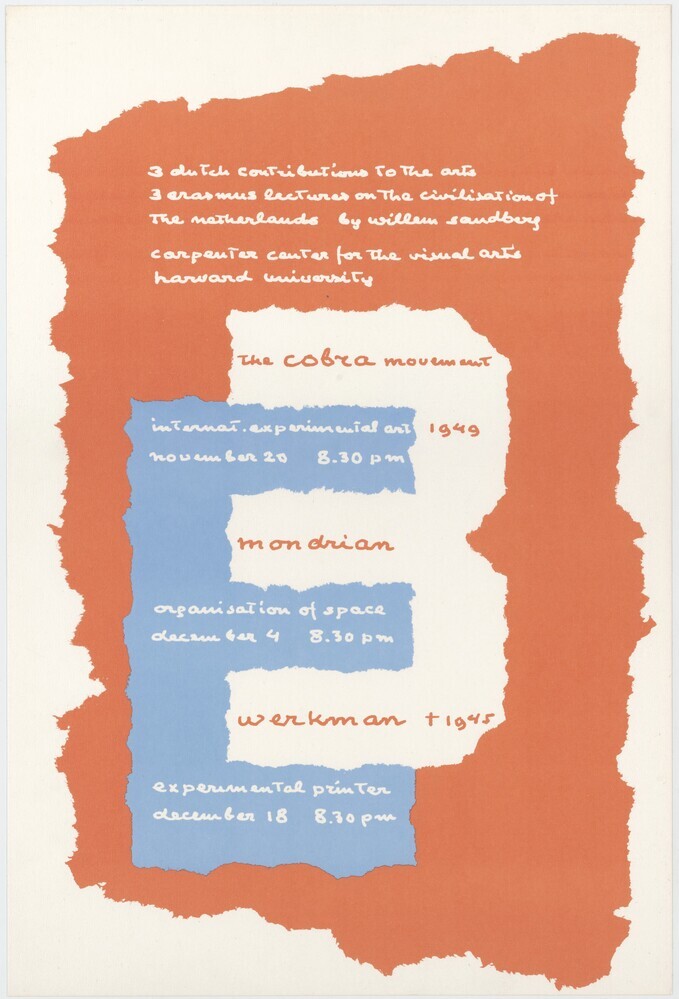 3 dutch contributions to the arts
3 erasmus lectures on the civilisation of
the netherlands by willem sandberg
carpenter center for the visual arts
harvard university
the cobra movement
internat. experimental art 1949
november 20 8.30 pm
mondrian
organisation of space
december 4 8.30 pm
werkman † 1945
experimental printer
december 18 8.30 pm